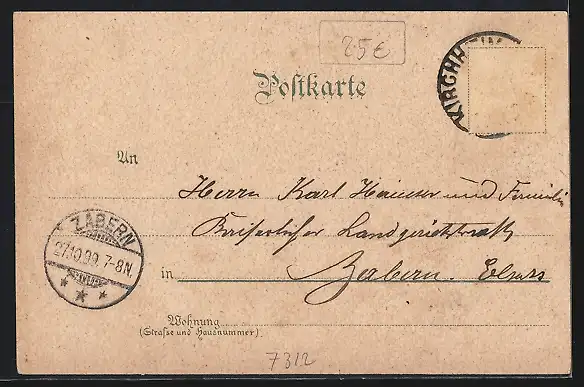 25€
Postkarte
KIRCHHEIM
An
Herrn Karl Hauser und Familie
Kaiserlicher Landgerichtsrath
ZABERN
27.10.99. 7-8N.
in Zabern. Elsass
Wohnung
(Strasse und Hausnummer)
7312